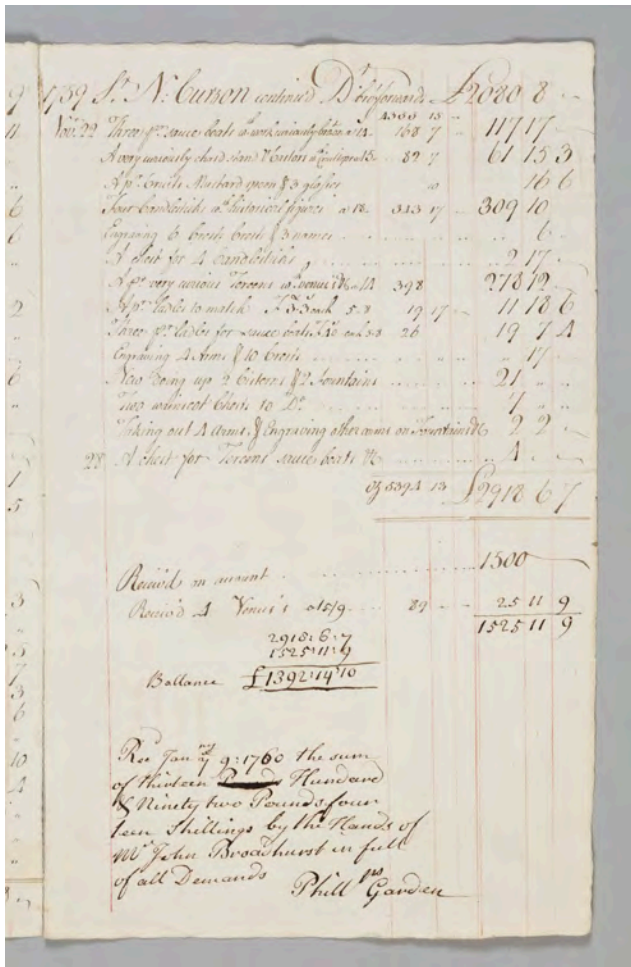 1759 Sr. N. Curson continued Dr. brot forward £2080 8 "
4500 15
Nov. 22 Three pr. sauce boats wt. work curiously 168 7 117 17 "
A very curiously chas'd stand 82 7 61 15 3
A pr. Cruits Mustard spoon & 3 glasses 16 6
Four Candlesticks wt. historical figures a 18 343 17 309 10
Engraving 6 Crests Crests & 3 names 6
A Chest for 4 Candlesticks 2 17
A pr. very curious Toreens wt. Venus's &c a 14 398 278 12
A pr. ladles to match 5.8 19 17 11 18 6
Three pr. ladles for sauce boats 5.8 26 19 7 4
Engraving 4 Arms & 10 Crests 17
New Doing up 2 Cisterns & 2 Fountains 21 " "
Two wainscot Chests to Do. 7 " "
Taking out 4 arms, & Engraving other arms on Fountains &c 2 2 "
28 A chest for Toreens sauce boats &c 4 "
oz 5394 13 £2918 6 7
Receiv'd on account 1500
Receiv'd 4 Venus's a 5/9 89 25 11 9
1525 11 9
2918: 6: 7
1525: 11: 9
Ballance £1392: 14: 10
Rec Janry 9: 1760 the sum
of thirteen Pounds Hundard
& Ninety two Pounds four
teen Shillings by the Hands of
Mr John Broadhurst in full
of all Demands Phillps Garden
9
11
"
6
6
"
2
"
6
"
1
5
3
5
7
3
6
10
4
"